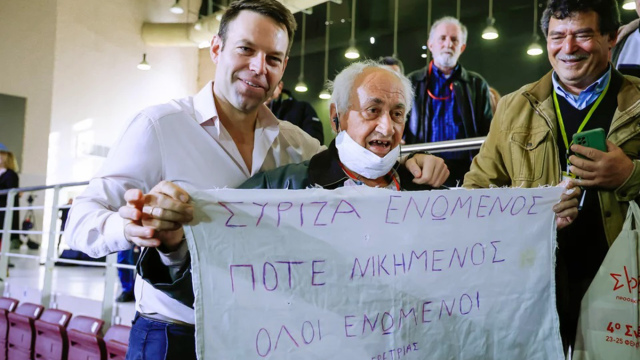 ΣΥΡΙΖΑ ΕΝΩΜΕΝΟΣ
ΠΟΤΕ ΝΙΚΗΜΕΝΟΣ
ΟΛΟΙ ΕΝΩΜΕΝΟΙ
ΕΡΕΤΡΙΑΣ
4º Συ
23-25 ΦΕ